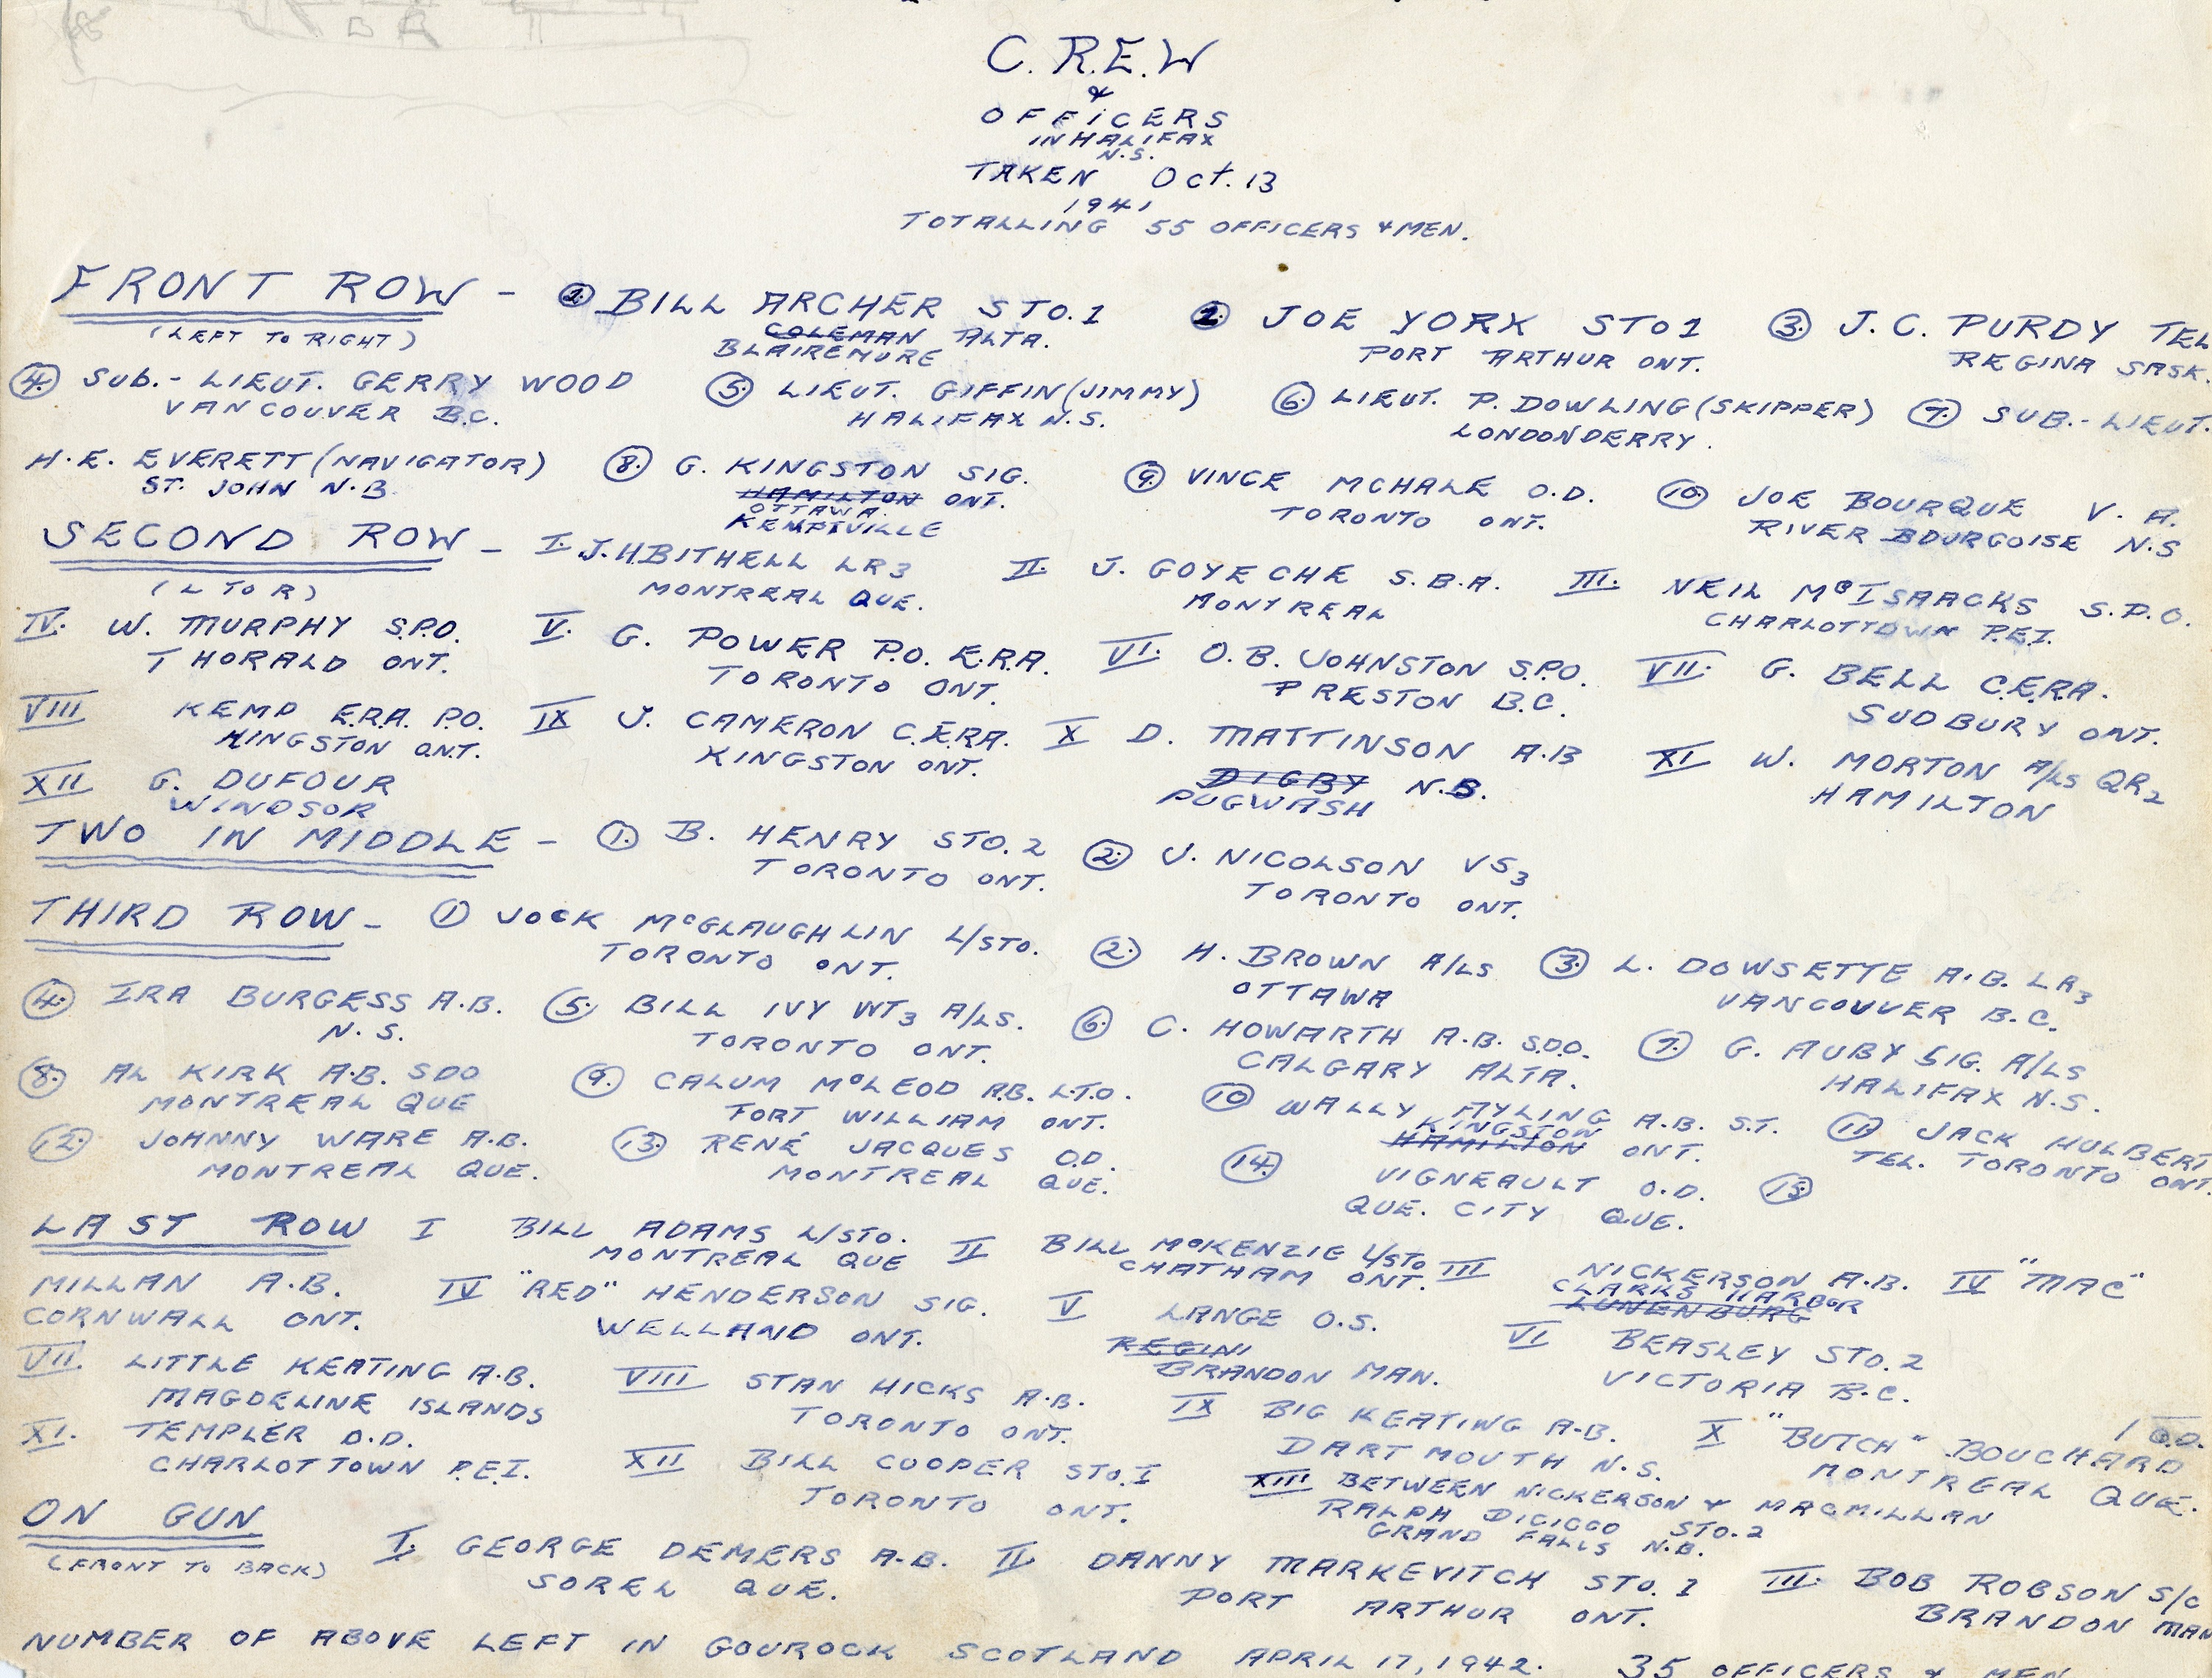 C.R.E.W
&
OFFICERS
IN HALIFAX
N.S.
TAKEN Oct. 13
1941
TOTALLING 55 OFFICERS & MEN.
FRONT ROW - 1. BILL ARCHER STO.1 2. JOE YORK STO1 3. J.C. PURDY TEL
(LEFT TO RIGHT) COLEMAN ALTA. PORT ARTHUR ONT. REGINA SASK.
BLAIREMURE
4. SUB.- LIEUT. GERRY WOOD 5. LIEUT. GIFFIN (JIMMY) 6. LIEUT. P. DOWLING (SKIPPER) 7. SUB.- LIEUT.
VANCOUVER B.C. HALIFAX N.S. LONDONDERRY.
H.E. EVERETT (NAVIGATOR) 8. G. KINGSTON SIG. 9. VINCE MCHALE O.D. 10. JOE BOURQUE V. A.
ST. JOHN N.B. HAMILTON ONT. TORONTO ONT. RIVER BOURGOISE N.S
OTTAWA.
KEMPTVILLE
SECOND ROW - I. J.H BITHELL LR3 II. J. GOYECHE S.B.A. III. NEIL McISAACKS S.P.O.
(L TO R) MONTREAL QUE. MONTREAL CHARLOTTOWN P.E.I.
IV. W. MURPHY S.P.O. V. G. POWER P.O. E.R.A. VI. O.B. JOHNSTON S.P.O. VII. G. BELL C.E.R.A.
THORALD ONT. TORONTO ONT. PRESTON B.C. SUDBURY ONT.
VIII KEMP E.R.A. P.O. IX J. CAMERON C.E.R.A. X D. MATTINSON A.B XI W. MORTON A/LS QR2
KINGSTON ONT. KINGSTON ONT. DIGBY N.B. HAMILTON
PUGWASH
XII G. DUFOUR
WINDSOR
TWO IN MIDDLE - 1. B. HENRY STO.2 2. J. NICOLSON VS3
TORONTO ONT. TORONTO ONT.
THIRD ROW - 1 JOCK McGLAUGHLIN L/STO. 2. H. BROWN A/LS 3. L. DOWSETTE A.B. LR3
TORONTO ONT. OTTAWA VANCOUVER B.C.
4. IRA BURGESS A.B. 5. BILL IVY WT3 A/LS. 6. C. HOWARTH A.B. S.D.O. 7. G. AUBY SIG. A/LS
N.S. TORONTO ONT. CALGARY ALTA. HALIFAX N.S.
8. AL KIRK A.B. SDO 9. CALUM McLEOD A.B. L.T.O. 10 WALLY AYLING A.B. S.T. 11. JACK HULBERT
MONTREAL QUE FORT WILLIAM ONT. KINGSTON HAMILTON ONT. TEL. TORONTO ONT.
12. JOHNNY WARE A.B. 13. RENÉ JACQUES O.D. 14. VIGNEAULT O.D. 15
MONTREAL QUE. MONTREAL QUE. QUE. CITY QUE.
LAST ROW I BILL ADAMS L/STO. II BILL McKENZIE L/STO III NICKERSON A.B. IV "MAC"
MONTREAL QUE CHATHAM ONT. CLARKS HARBOR
LUNENBURG
MILLAN A.B. IV "RED" HENDERSON SIG. V LANGE O.S. VI BEASLEY STO.2
CORNWALL ONT. WELLAND ONT. REGINI VICTORIA B.C.
BRANDON MAN.
VII. LITTLE KEATING A.B. VIII STAN HICKS A.B. IX BIG KEATING A.B. X "BUTCH" BOUCHARD O.D.
MAGDELINE ISLANDS TORONTO ONT. DARTMOUTH N.S. MONTREAL QUE.
XI. TEMPLER O.D. XII BILL COOPER STO.I XIII BETWEEN NICKERSON & MACMILLAN
CHARLOTTOWN P.E.I. TORONTO ONT. RALPH DICICCO STO.2
GRAND FALLS N.B.
ON GUN I. GEORGE DEMERS A.B. II DANNY MARKEVITCH STO.1 III. BOB ROBSON S/C
(FRONT TO BACK) SOREL QUE. PORT ARTHUR ONT. BRANDON MAN
NUMBER OF ABOVE LEFT IN GOUROCK SCOTLAND APRIL 17, 1942. 35 OFFICERS & MEN